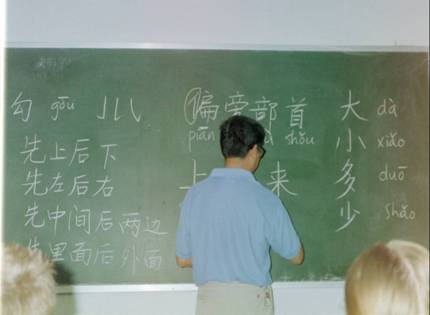 勾 gōu 亅乚 偏旁部首 大 dà
piān shǒu 小 xiǎo
先上后下
先左后右 上 来 多 duō
先中间后两边 少 shǎo
先里面后外面